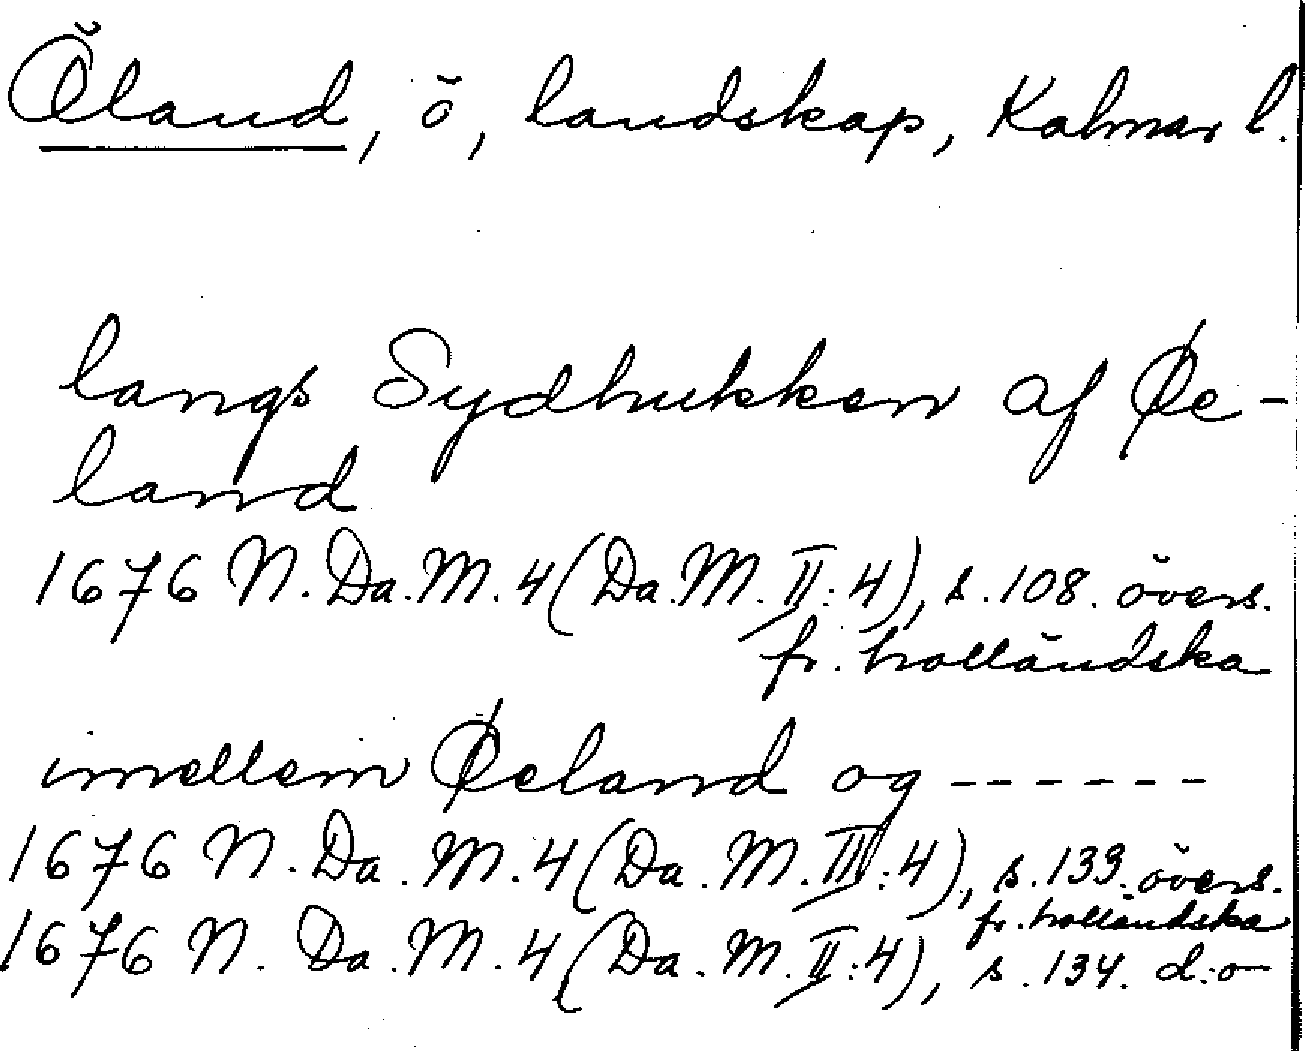 Öland, ö, landskap, Kalmar l.
langs Sydhukken af Øe-
land
1676 N. Da. M. 4 (Da. M. II: 4), s. 108. övers.
fr. holländska
imellem Øeland og ------
1676 N. Da. M. 4 (Da. M. III: 4), s. 133. övers.
fr. holländska
1676 N. Da. M. 4 (Da. M. II: 4), s. 134. d:o